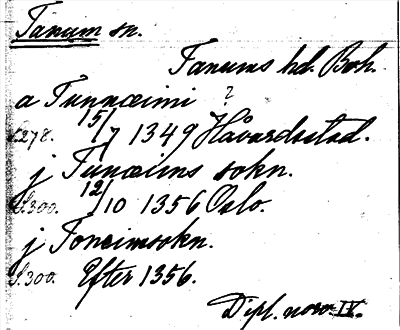 Tanum sn.
Tanums hd. Boh.
a Tunnœimi ?
S.278. 15/7 1349 Håvardsstad.
j Tunœims sokn.
S.300. 12/10 1356 Oslo.
j Toneimsokn.
S.300. Efter 1356.
Dipl. norv. IV.